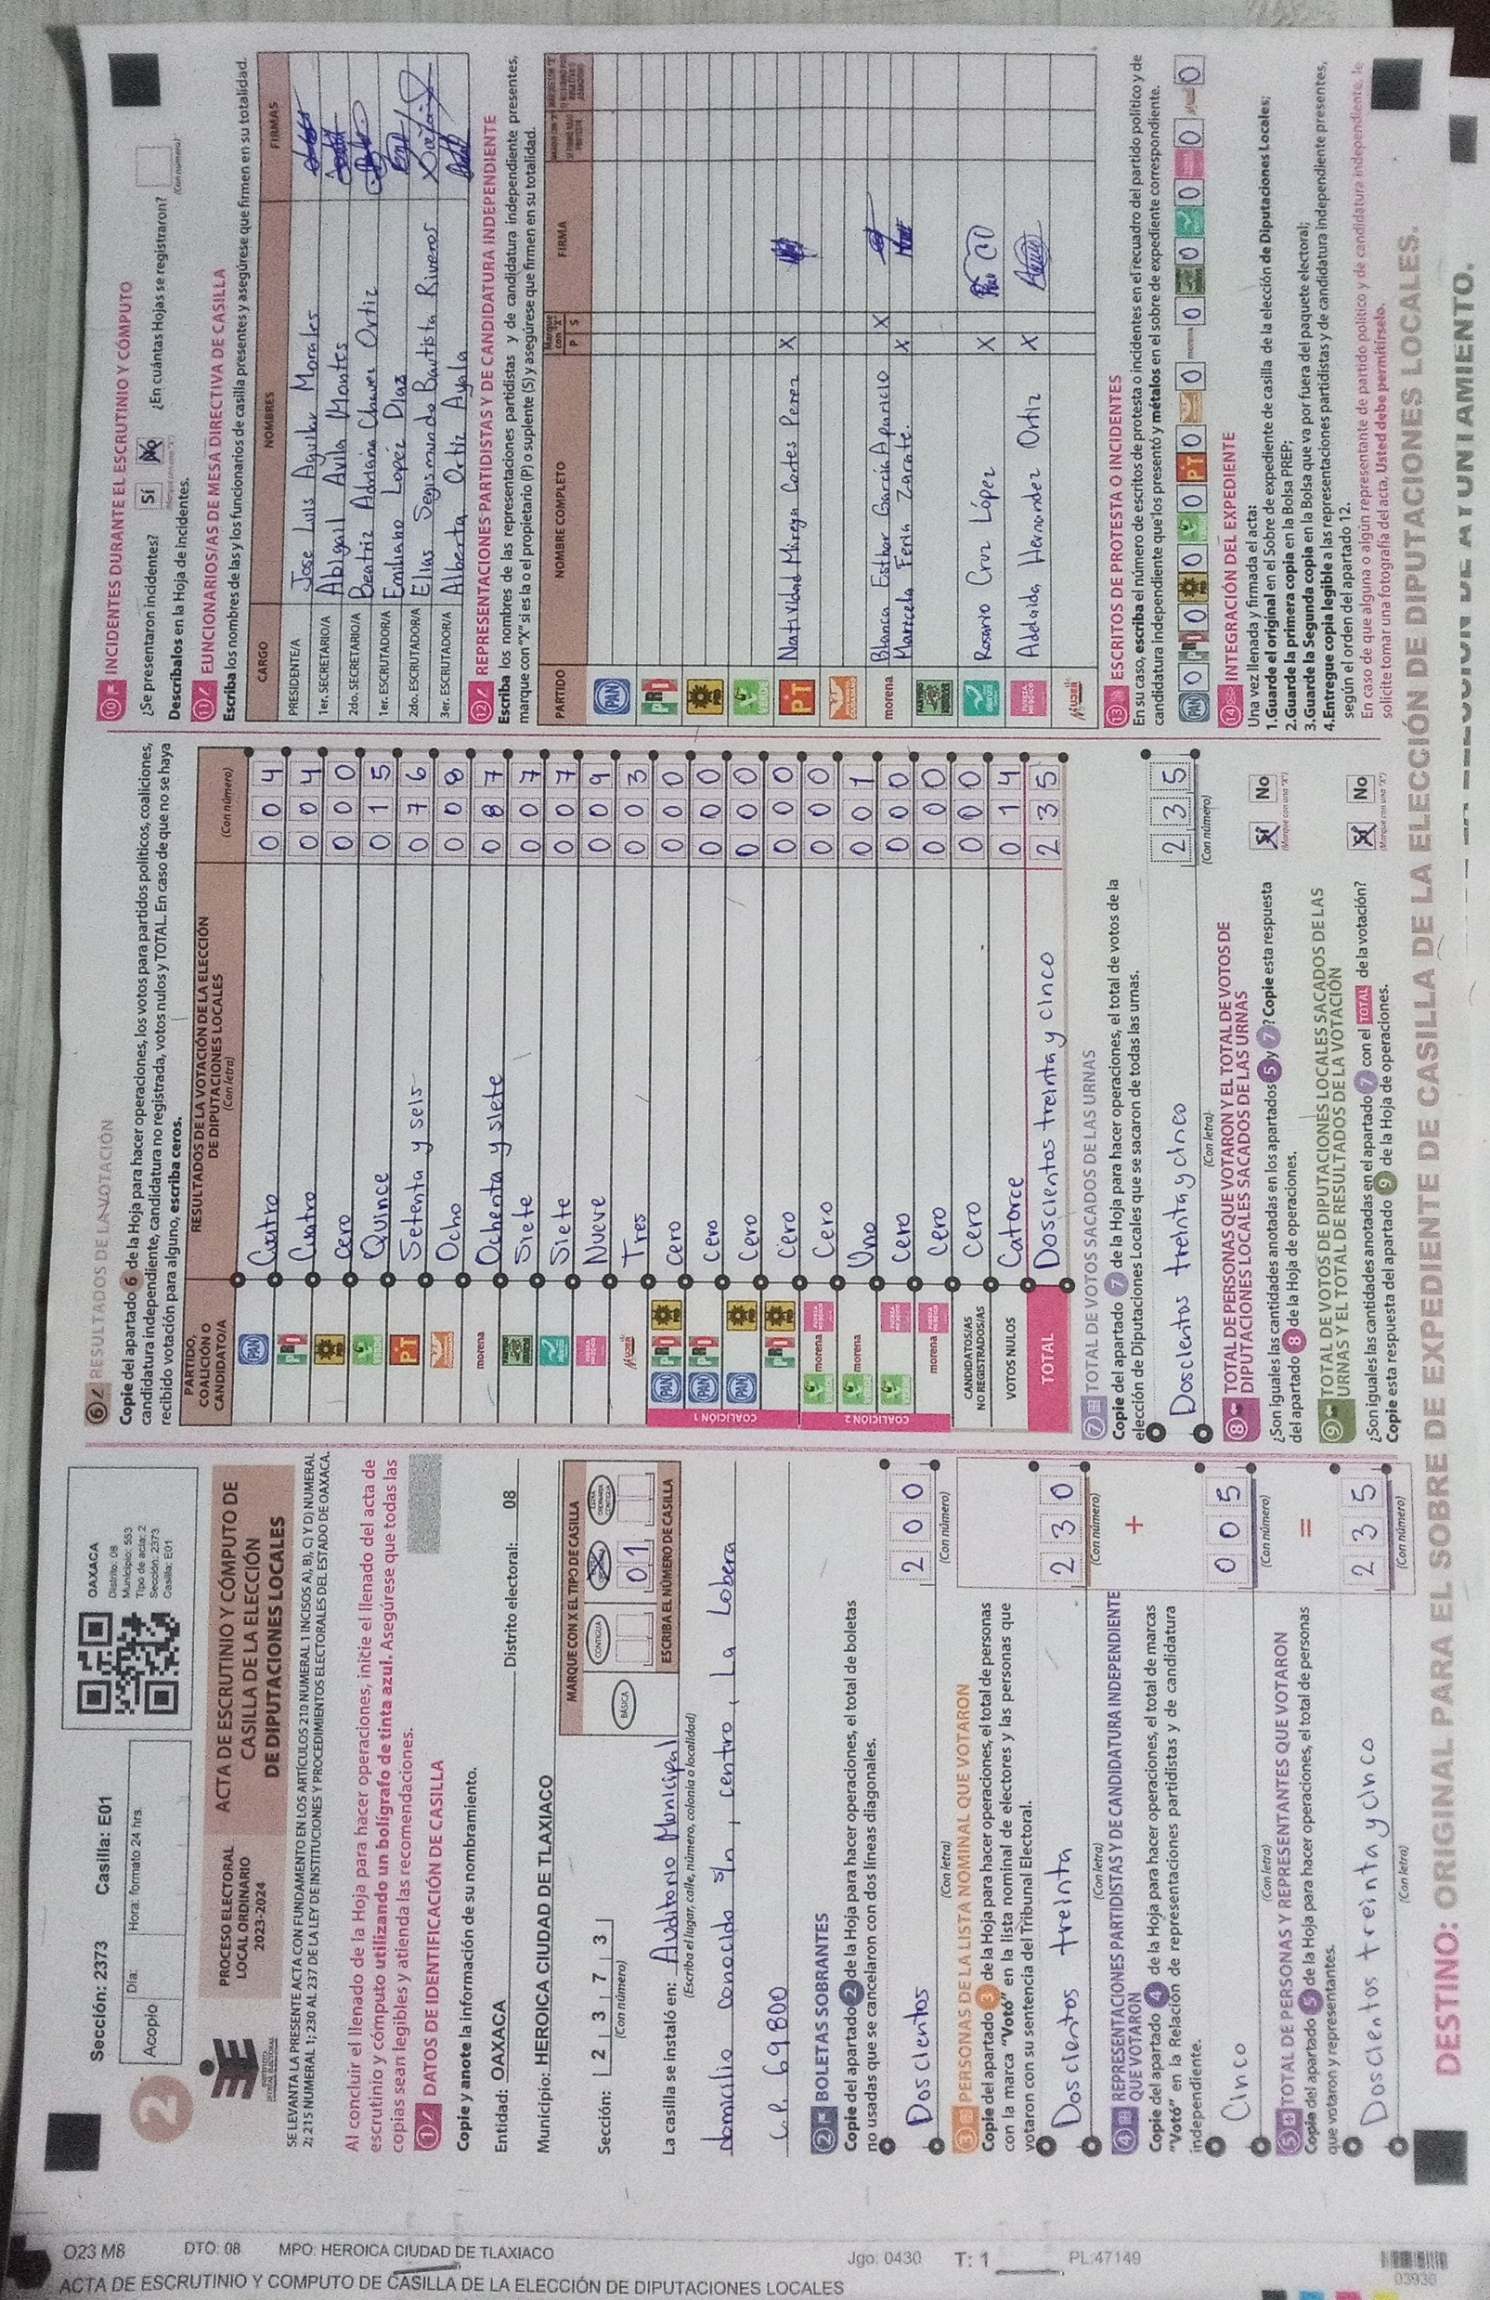 O23 M8
DTO: 08
MPO: HEROICA CIUDAD DE TLAXIACO
Jgo: 0430
T: 1
PL:47149
03930
ACTA DE ESCRUTINIO Y COMPUTO DE CASILLA DE LA ELECCIÓN DE DIPUTACIONES LOCALES
Sección: 2373 Casilla: E01
2
Acopio
Día:
Hora: formato 24 hrs.
OAXACA
Distrito: 08
Municipio: 553
Tipo de acta: 2
Sección: 2373
Casilla: E01
PROCESO ELECTORAL
LOCAL ORDINARIO
2023-2024
ACTA DE ESCRUTINIO Y CÓMPUTO DE
CASILLA DE LA ELECCIÓN
DE DIPUTACIONES LOCALES
SE LEVANTA LA PRESENTE ACTA CON FUNDAMENTO EN LOS ARTÍCULOS 210 NUMERAL 1 INCISOS A), B), C) Y D) NUMERAL
2; 215 NUMERAL 1; 230 AL 237 DE LA LEY DE INSTITUCIONES Y PROCEDIMIENTOS ELECTORALES DEL ESTADO DE OAXACA.
Al concluir el llenado de la Hoja para hacer operaciones, inicie el llenado del acta de
escrutinio y cómputo utilizando un bolígrafo de tinta azul. Asegúrese que todas las
copias sean legibles y atienda las recomendaciones.
1 DATOS DE IDENTIFICACIÓN DE CASILLA
Copie y anote la información de su nombramiento.
Entidad: OAXACA Distrito electoral: 08
Municipio: HEROICA CIUDAD DE TLAXIACO
Sección: 2 3 7 3
(Con número)
MARQUE CON X EL TIPO DE CASILLA
BÁSICA
CONTIGUA
01
ESCRIBA EL NÚMERO DE CASILLA
La casilla se instaló en: Auditorio Municipal
(Escriba el lugar, calle, número, colonia o localidad)
domicilio conocido s/n, centro, La Lobera
C.P. 69800
2 BOLETAS SOBRANTES
Copie del apartado 2 de la Hoja para hacer operaciones, el total de boletas
no usadas que se cancelaron con dos líneas diagonales.
Doscientos 2 0 0
(Con letra) (Con número)
3 PERSONAS DE LA LISTA NOMINAL QUE VOTARON
Copie del apartado 3 de la Hoja para hacer operaciones, el total de personas
con la marca "Votó" en la lista nominal de electores y las personas que
votaron con su sentencia del Tribunal Electoral.
Doscientos treinta 2 3 0
(Con letra) (Con número)
+
4 REPRESENTACIONES PARTIDISTAS Y DE CANDIDATURA INDEPENDIENTE
QUE VOTARON
Copie del apartado 4 de la Hoja para hacer operaciones, el total de marcas
"Votó" en la Relación de representaciones partidistas y de candidatura
independiente.
Cinco 0 0 5
(Con letra) (Con número)
=
5 TOTAL DE PERSONAS Y REPRESENTANTES QUE VOTARON
Copie del apartado 5 de la Hoja para hacer operaciones, el total de personas
que votaron y representantes.
Doscientos treinta y cinco 2 3 5
(Con letra) (Con número)
6 RESULTADOS DE LA VOTACIÓN
Copie del apartado 6 de la Hoja para hacer operaciones, los votos para partidos políticos, coaliciones,
candidatura independiente, candidatura no registrada, votos nulos y TOTAL. En caso de que no se haya
recibido votación para alguno, escriba ceros.
PARTIDO,
COALICIÓN O
CANDIDATO/A
RESULTADOS DE LA VOTACIÓN DE LA ELECCIÓN
DE DIPUTACIONES LOCALES
(Con letra) (Con número)
PAN Cuatro 0 0 4
PRI Cuatro 0 0 4
PRD cero 0 0 0
VERDE Quince 0 1 5
PT Setenta y seis 0 7 6
Ocho 0 0 8
morena Ochenta y siete 0 8 7
Siete 0 0 7
Siete 0 0 7
Nueve 0 0 9
MUJER Tres 0 0 3
COALICIÓN 1
PAN PRI PRD cero 0 0 0
PAN PRI cero 0 0 0
PAN PRD cero 0 0 0
PRI PRD cero 0 0 0
COALICIÓN 2
VERDE morena cero 0 0 0
VERDE morena Uno 0 0 1
VERDE cero 0 0 0
morena cero 0 0 0
CANDIDATOS/AS
NO REGISTRADOS/AS Cero 0 0 0
VOTOS NULOS Catorce 0 1 4
TOTAL Doscientos treinta y cinco 2 3 5
7 TOTAL DE VOTOS SACADOS DE LAS URNAS
Copie del apartado 7 de la Hoja para hacer operaciones, el total de votos de la
elección de Diputaciones Locales que se sacaron de todas las urnas.
Doscientos treinta y cinco 2 3 5
(Con letra) (Con número)
8 TOTAL DE PERSONAS QUE VOTARON Y EL TOTAL DE VOTOS DE
DIPUTACIONES LOCALES SACADOS DE LAS URNAS
¿Son iguales las cantidades anotadas en los apartados 5 y 7? Copie esta respuesta
del apartado 8 de la Hoja de operaciones.
Sí No
(Marque con una "X")
9 TOTAL DE VOTOS DE DIPUTACIONES LOCALES SACADOS DE LAS
URNAS Y EL TOTAL DE RESULTADOS DE LA VOTACIÓN
¿Son iguales las cantidades anotadas en el apartado 7 con el TOTAL de la votación?
Copie esta respuesta del apartado 9 de la Hoja de operaciones.
Sí No
(Marque con una "X")
10 INCIDENTES DURANTE EL ESCRUTINIO Y CÓMPUTO
¿Se presentaron incidentes? Sí No ¿En cuántas Hojas se registraron?
(Marque con una "X") (Con número)
Descríbalos en la Hoja de incidentes.
11 FUNCIONARIOS/AS DE MESA DIRECTIVA DE CASILLA
Escriba los nombres de las y los funcionarios de casilla presentes y asegúrese que firmen en su totalidad.
CARGO NOMBRES FIRMAS
PRESIDENTE/A Jose Luis Aguilar Morales
1er. SECRETARIO/A Abigail Avila Montes
2do. SECRETARIO/A Beatriz Adriana Chavez Ortiz
1er. ESCRUTADOR/A Emiliano Lopez Diaz
2do. ESCRUTADOR/A Elias Segismundo Bautista Riveros
3er. ESCRUTADOR/A Alberta Ortiz Ayala
12 REPRESENTACIONES PARTIDISTAS Y DE CANDIDATURA INDEPENDIENTE
Escriba los nombres de las representaciones partidistas y de candidatura independiente presentes,
marque con "X" si es la o el propietario (P) o suplente (S) y asegúrese que firmen en su totalidad.
PARTIDO NOMBRE COMPLETO Marque con "X" P S FIRMA
PAN
PRI
PRD
VERDE
PT Natividad Mireya Cortes Perez X
morena Blanca Esther Garcia Aparicio X
Marcela Feria Zarate. X
Rosario Cruz López X
Adelaida Hernandez Ortiz X
MUJER
13 ESCRITOS DE PROTESTA O INCIDENTES
En su caso, escriba el número de escritos de protesta o incidentes en el recuadro del partido político y de
candidatura independiente que los presentó y métalos en el sobre de expediente correspondiente.
PAN 0 PRI 0 0 0 PT 0 0 morena 0 0 0 0 0
14 INTEGRACIÓN DEL EXPEDIENTE
Una vez llenada y firmada el acta:
1.Guarde el original en el Sobre de expediente de casilla de la elección de Diputaciones Locales;
2.Guarde la primera copia en la Bolsa PREP;
3.Guarde la Segunda copia en la Bolsa que va por fuera del paquete electoral;
4.Entregue copia legible a las representaciones partidistas y de candidatura independiente presentes,
según el orden del apartado 12.
En caso de que alguna o algún representante de partido político y de candidatura independiente, le
solicite tomar una fotografía del acta, Usted debe permitírselo.
DESTINO: ORIGINAL PARA EL SOBRE DE EXPEDIENTE DE CASILLA DE LA ELECCIÓN DE DIPUTACIONES LOCALES.